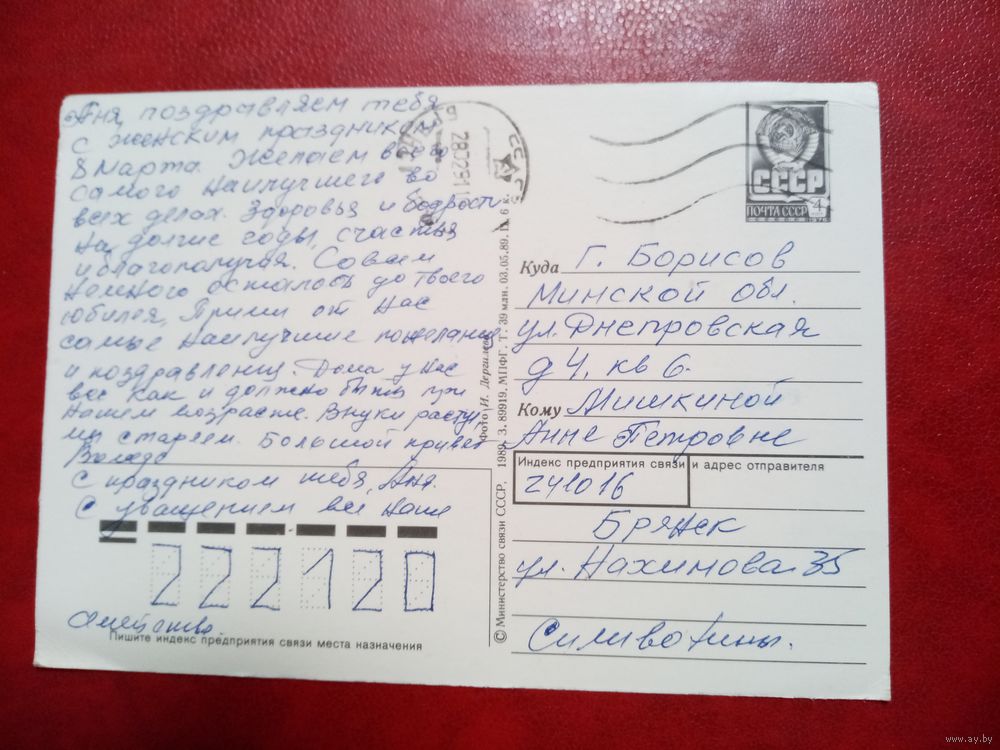 Аня, поздравляем тебя
с женским праздником
8 марта. Желаем всего
самого наилучшего во
всех делах. Здоровья и бодрости
на долгие годы, счастья
и благополучия. Совсем
немного осталось до твоего
юбилея. Прими от нас
самые наилучшие пожелания
и поздравления. Дома у нас
все как и должно быть при
нашем возрасте. Внуки растут,
мы стареем. Большой привет
Володе
С праздником тебя, Аня.
С уважением все наше
семейство.
222120
Пишите индекс предприятия связи места назначения
© Министерство связи СССР, 1989. З. 89919. МПФГ. Т. 39 млн. 03.05.89. Ц. 6 к.
Фото И. Дергилева
280291
СССР
ПОЧТА СССР
4
Куда г. Борисов
Минской обл.
ул. Днепровская
д 4, кв 6.
Кому Мишкиной
Анне Петровне
Индекс предприятия связи и адрес отправителя
241016
Брянск
ул. Нахимова 35
www.ay.by